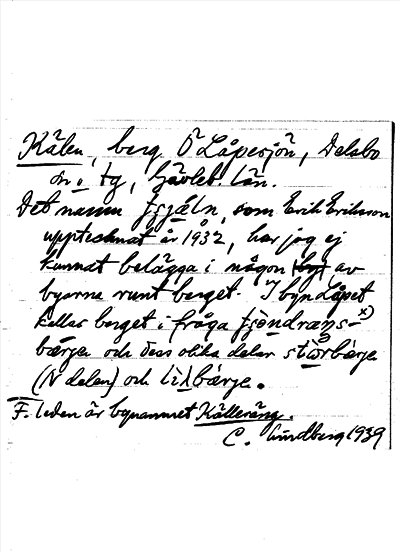 Kälen, berg Ö Låpesjön, Delsbo
sn o. tg, Gävleb. län.
Det namn fȷä̀ln, som Erik Eriksson
upptecknat år 1932, har jag ej
kunnat belägga i någon (by) av
byarna runt berget. I byn Låpet
kallas berget i fråga fȷæ̀ndræŋs- x)
bærȷe och dess olika delar stòrbærȷe
(N delen) och lìλbærȷe.
F. leden är bynamnet Källeräng.
C. Lindberg 1939